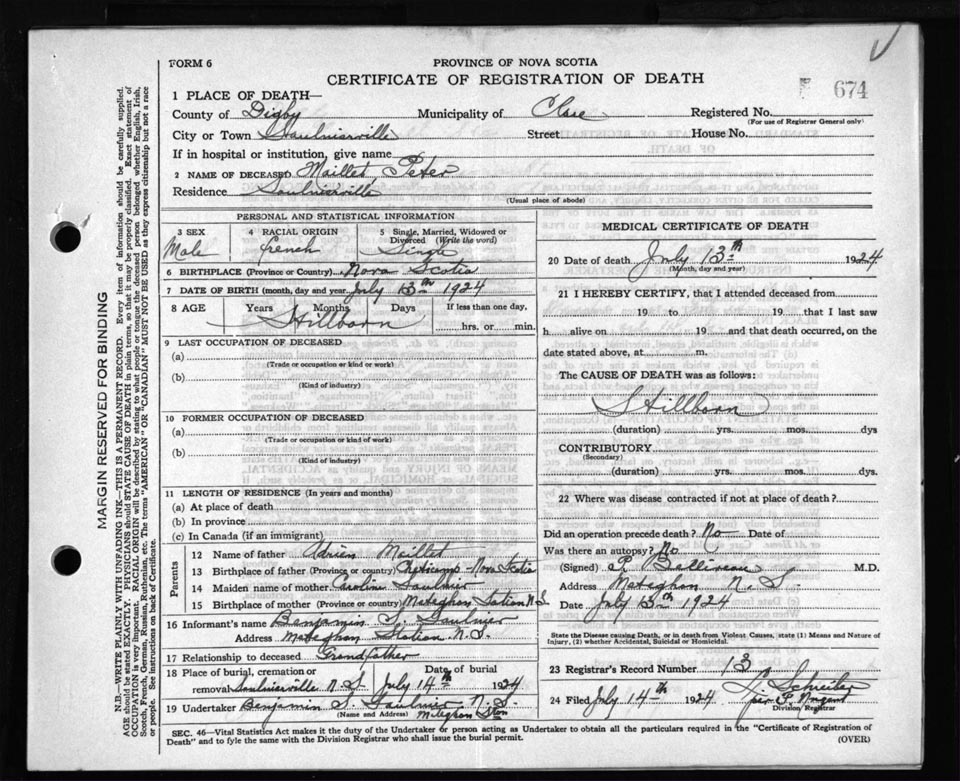 FORM 6
PROVINCE OF NOVA SCOTIA
CERTIFICATE OF REGISTRATION OF DEATH
674
1 PLACE OF DEATH—
County of Digby Municipality of Clare Registered No.
(For use of Registrar General only)
City or Town Saulnierville Street House No.
If in hospital or institution, give name
2 NAME OF DECEASED Maillet, Peter
Residence Saulnierville
(Usual place of abode)
PERSONAL AND STATISTICAL INFORMATION
3 SEX 4 RACIAL ORIGIN 5 Single, Married, Widowed or Divorced (Write the word)
Male French Single
6 BIRTHPLACE (Province or Country) Nova Scotia
7 DATE OF BIRTH (month, day and year) July 13th 1924
8 AGE Years Months Days If less than one day,
Stillborn hrs. or min.
9 LAST OCCUPATION OF DECEASED
(a)
(Trade or occupation or kind or work)
(b)
(Kind of industry)
10 FORMER OCCUPATION OF DECEASED
(a)
(Trade or occupation or kind of work)
(b)
(Kind of industry)
11 LENGTH OF RESIDENCE (In years and months)
(a) At place of death
(b) In province
(c) In Canada (if an immigrant)
Parents
12 Name of father Adrien Maillet
13 Birthplace of father (Province or country) Nova Scotia
14 Maiden name of mother Caroline Saulnier
15 Birthplace of mother (Province or country) Meteghan Station N.S.
16 Informant's name Benjamin S. Saulnier
Address Meteghan Station N.S.
17 Relationship to deceased Grandfather
18 Place of burial, cremation or removal Saulnierville N.S. Date of burial July 14th 1924
19 Undertaker Benjamin S. Saulnier N.S.
(Name and Address) Meteghan Ston
MEDICAL CERTIFICATE OF DEATH
20 Date of death July 13th 1924
(Month, day and year)
21 I HEREBY CERTIFY, that I attended deceased from
19 to 19 that I last saw
h alive on 19 and that death occurred, on
date stated above, at m.
The CAUSE OF DEATH was as follows:
Stillborn
(duration) yrs. mos. dys
CONTRIBUTORY
(Secondary)
(duration) yrs. mos. dys.
22 Where was disease contracted if not at place of death?
Did an operation precede death? No Date of
Was there an autopsy? No
(Signed) P. Belliveau M.D.
Address Meteghan N.S.
Date July 13th 1924
State the Disease causing Death, or in death from Violent Causes, state (1) Means and Nature of
Injury, (2) whether Accidental, Suicidal or Homicidal.
23 Registrar's Record Number 13
24 Filed July 14th 1924 Schreiber
Division Registrar
SEC. 46—Vital Statistics Act makes it the duty of the Undertaker or person acting as Undertaker to obtain all the particulars required in the "Certificate of Registration of
Death" and to fyle the same with the Division Registrar who shall issue the burial permit.
(OVER)
MARGIN RESERVED FOR BINDING
N.B.—WRITE PLAINLY WITH UNFADING INK—THIS IS A PERMANENT RECORD. Every item of information should be carefully supplied.
AGE should be stated EXACTLY. PHYSICIANS should STATE CAUSE OF DEATH in plain terms, so that it may be properly classified. Exact statement of
OCCUPATION is very important. RACIAL ORIGIN will be described by stating to what people or tongue the deceased person belonged whether English, Irish,
Scotch, French, German, Russian, Ruthenian, etc. The terms "AMERICAN" OR "CANADIAN" MUST NOT BE USED as they express citizenship but not a race
or people. See instructions on back of Certificate.